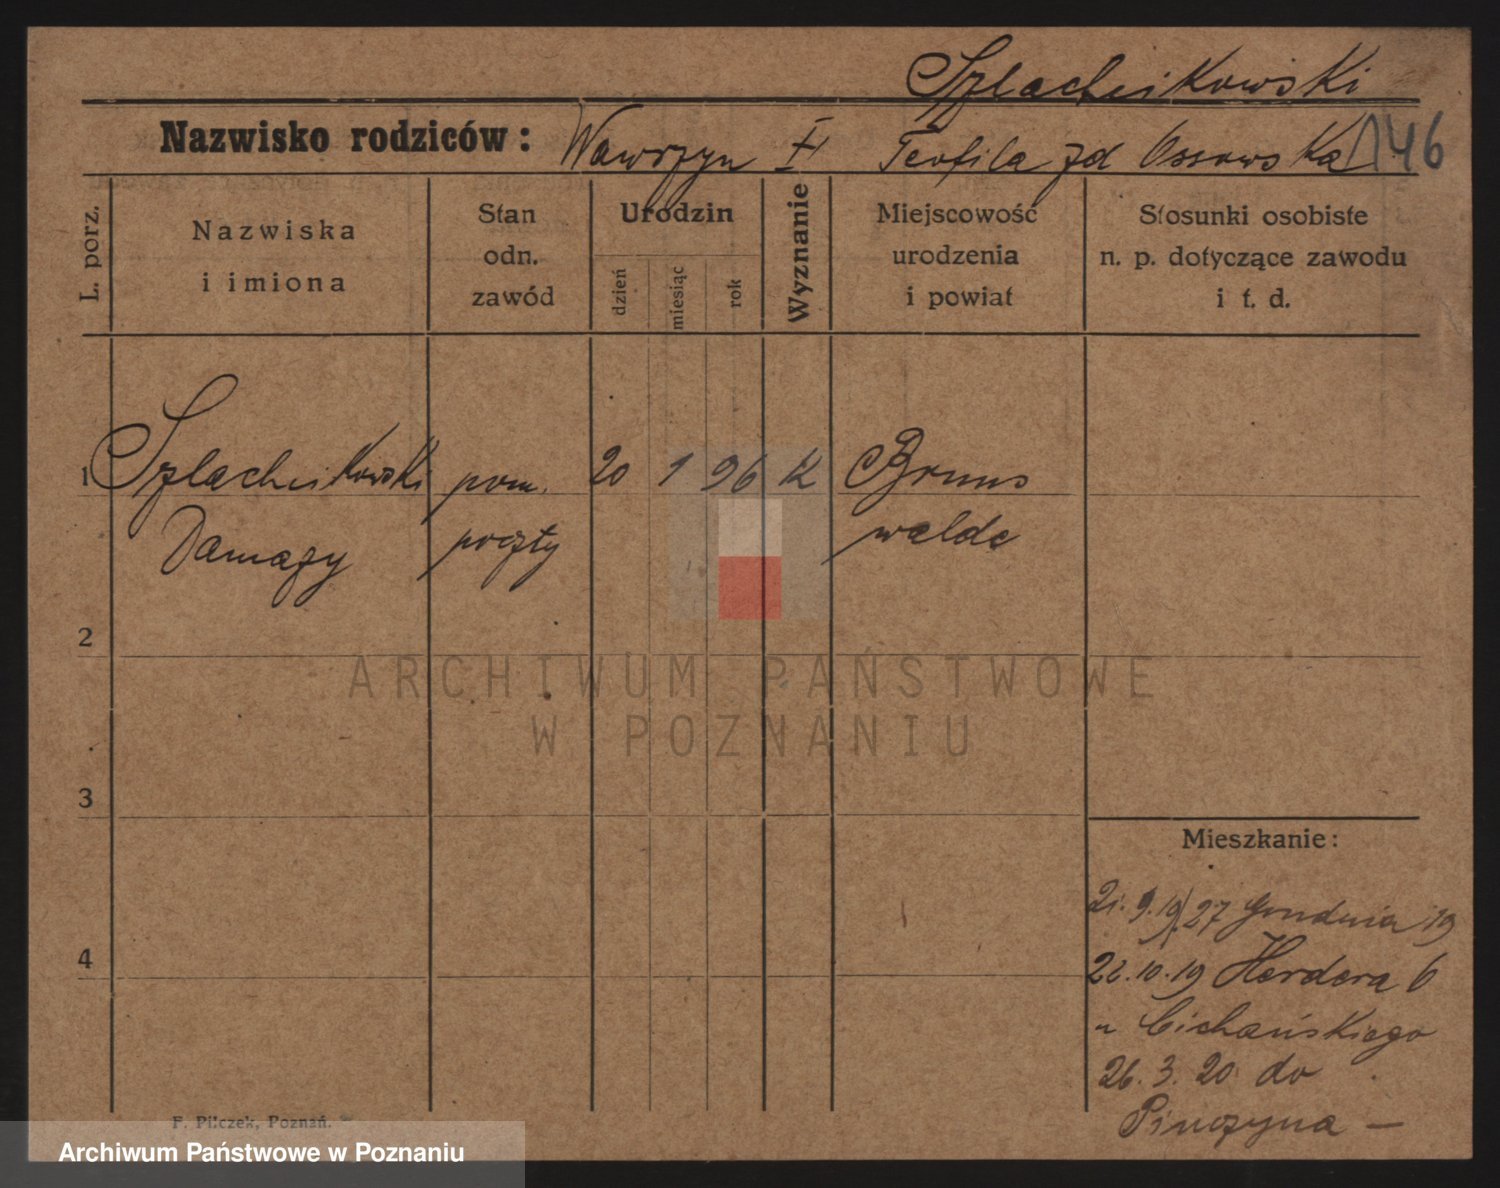 Szlachcikowski
Nazwisko rodziców: Wawrzyn i Teofila zd Ossowska 146
L. porz.
Nazwiska
i imiona
Stan
odn.
zawód
Urodzin
dzień
miesiąc
rok
Wyznanie
Miejscowość
urodzenia
i powiat
Stosunki osobiste
n. p. dotyczące zawodu
i t. d.
1 Szlachcikowski pom. 20 1 96 K Bruns
Damazy poczty walde
2
ARCHIWUM PAŃSTWOWE
W POZNANIU
3
Mieszkanie:
21.9.19 27 Grudnia 19
4
22.10.19 Herdera 6
u Cichańskiego
26.3.20 do
Pinczyna —
F. Pilczek, Poznań.
Archiwum Państwowe w Poznaniu